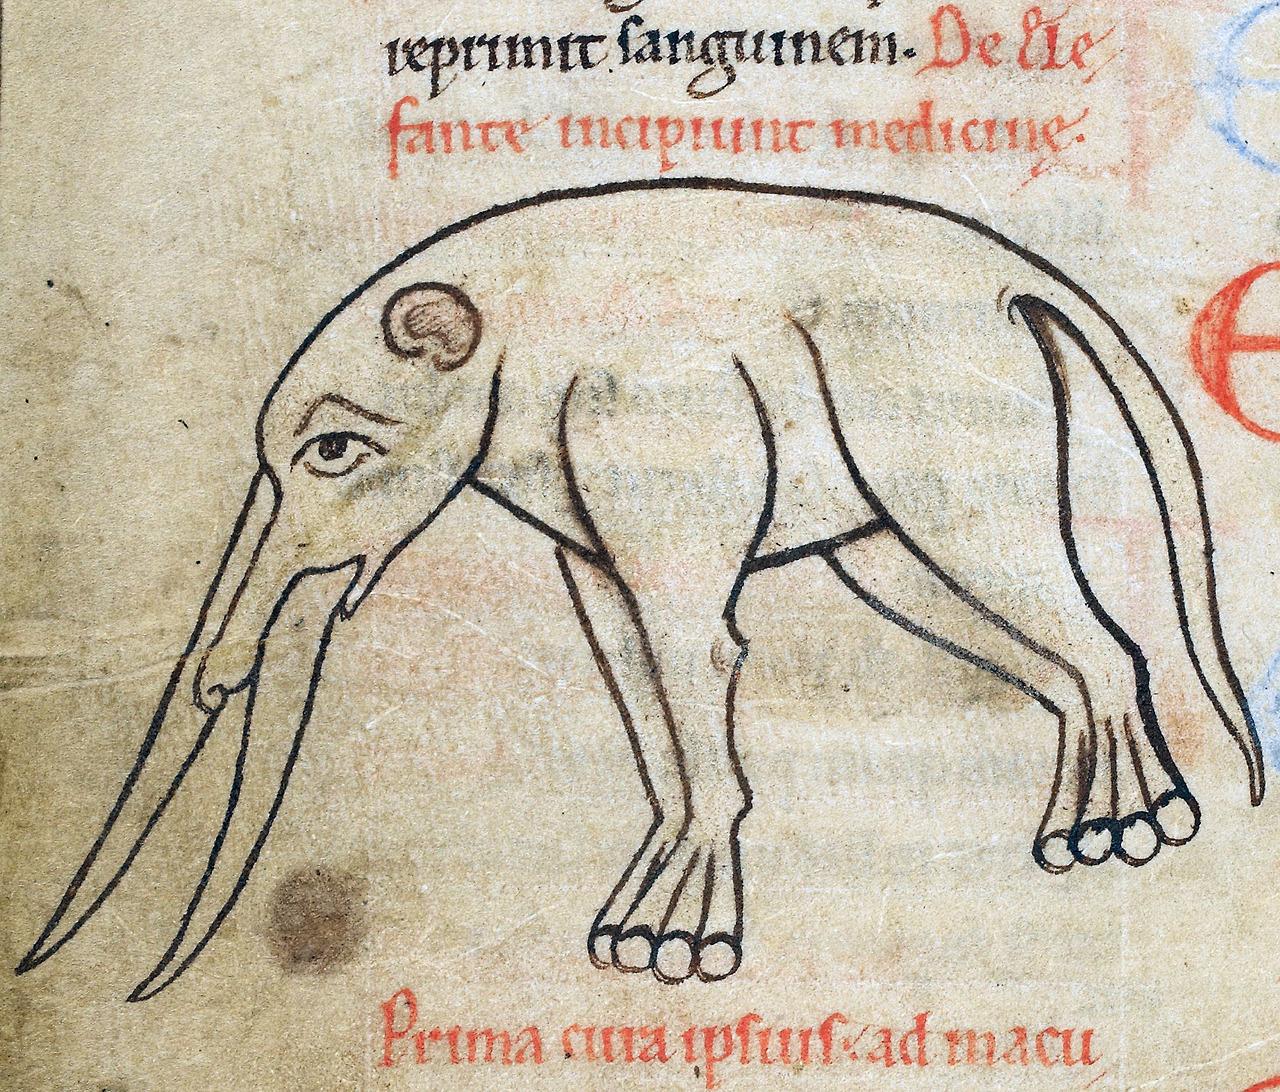 reprimit sanguinem. De Ele
fante incipiunt medicine.
E
Prima cura ipsius. ad macu